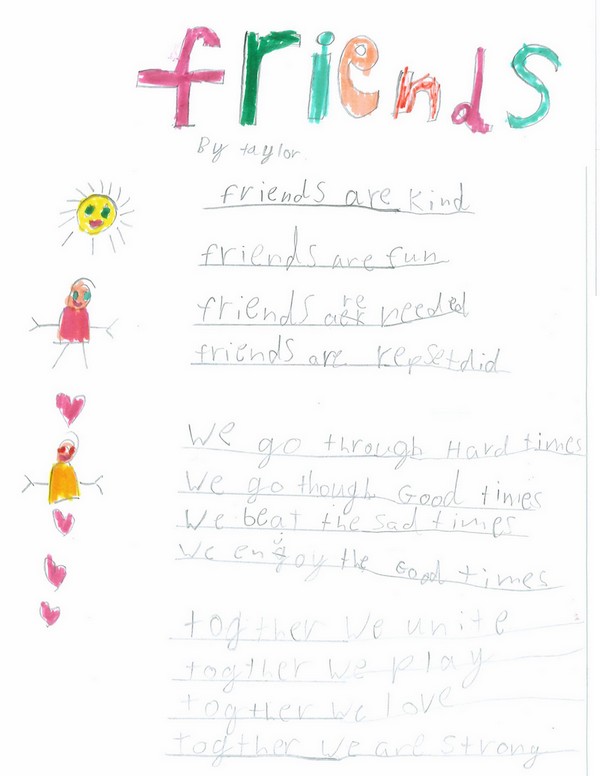 friends
By taylor
friends are kind
friends are fun
friends are needed
friends are repsetdid
We go through Hard times
We go though Good times
We beat the sad times
We enjoy the Good times
togther we unite
togther we play
togther we love
togther we are strong